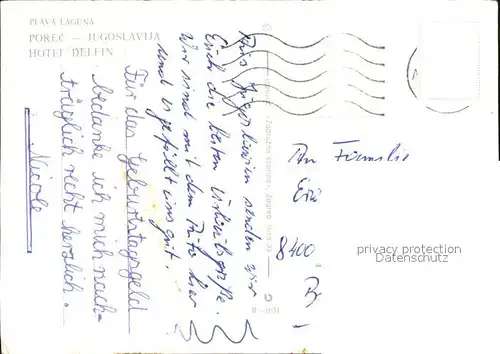 PLAVA LAGUNA
POREČ — JUGOSLAVIJA
HOTEL DELFIN
Aus Jugoslawien senden wir
Euch die besten Urlaubsgrüße.
Wir sind mit dem Auto hier
und es gefällt uns gut.
Für das Geburtstagsgeld
bedanke ich mich nach-
träglich recht herzlich.
Nicole
An Familie
8400
privacy protection
Datenschutz